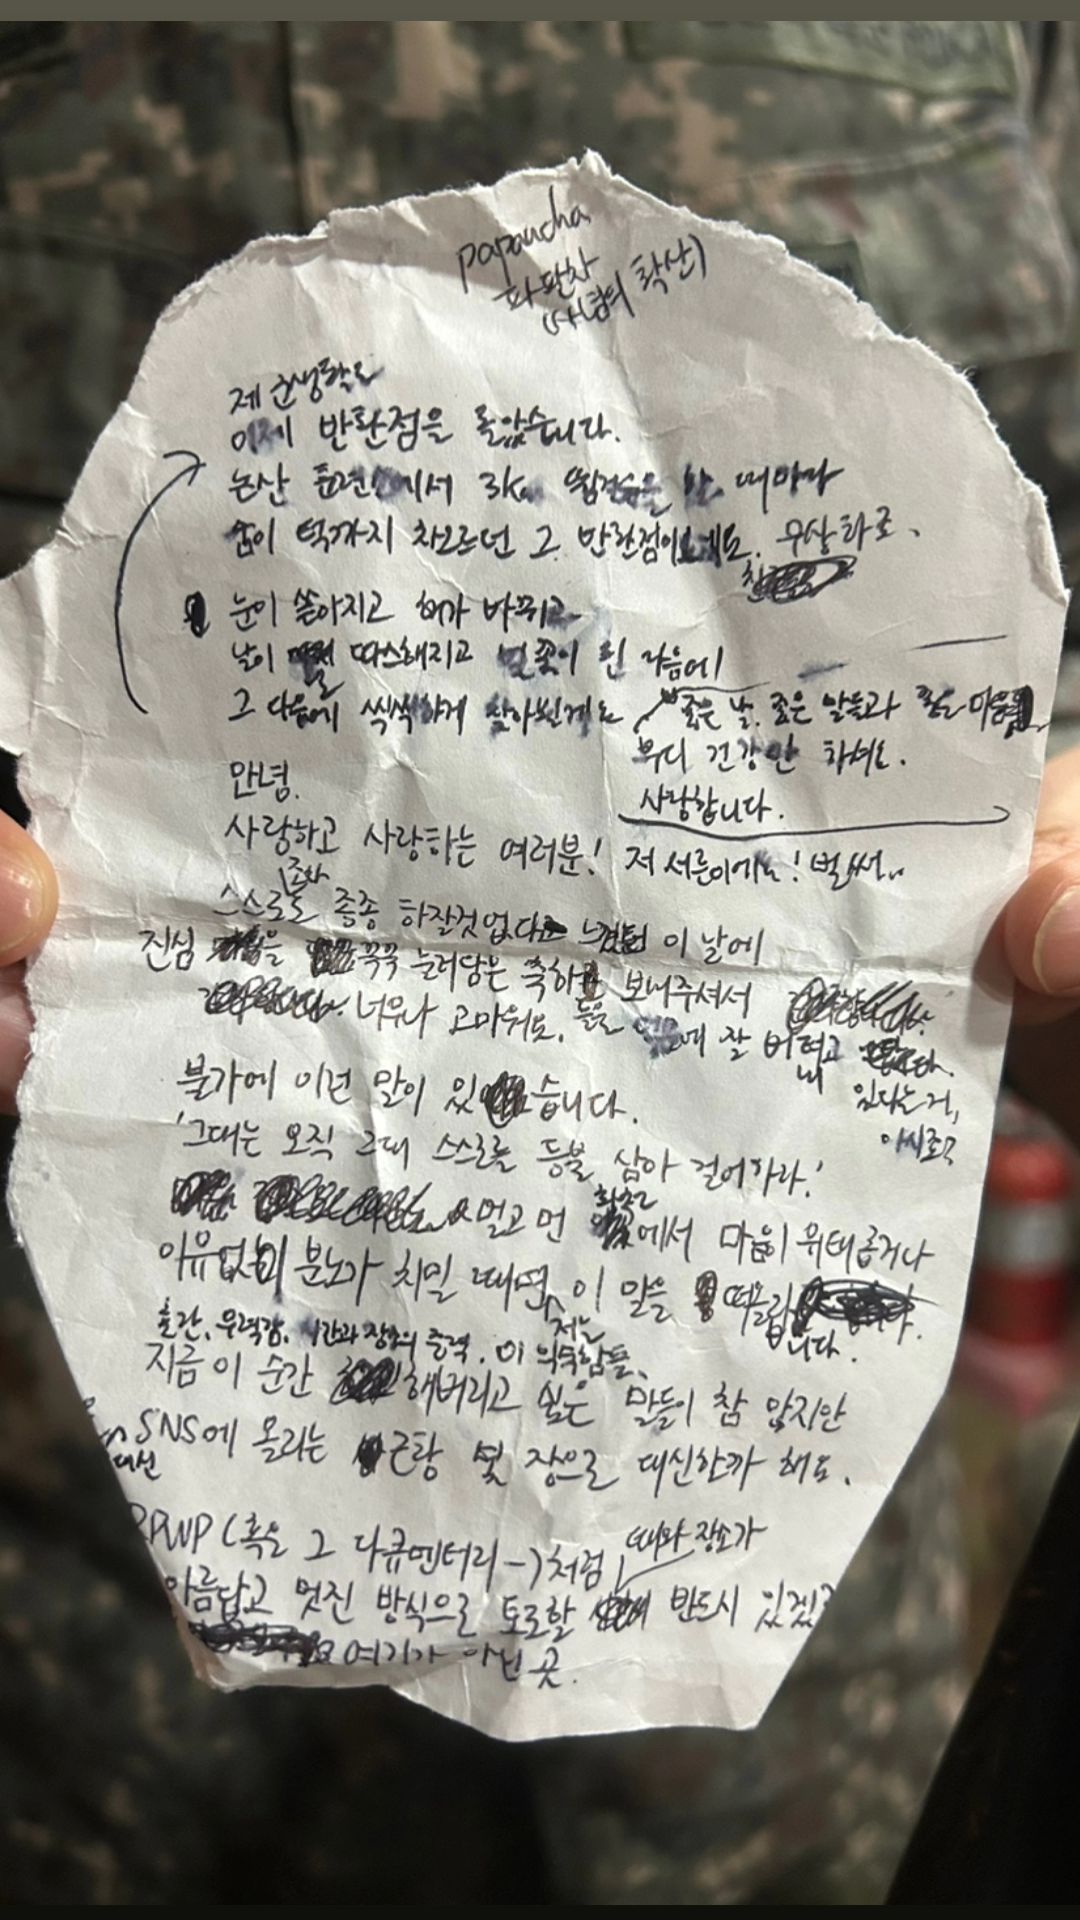 papancha
파판차
(사념의 확산)
제 군생활도
이제 반환점을 돌았습니다.
논산 훈련소에서 3km 뜀걸음을 할 때마다
숨이 턱까지 차오르던 그 반환점이로네요. 무상하죠.
눈이 쏟아지고 해가 바뀌고
날이 따스해지고 벚꽃이 핀 다음에
그 다음에 씩씩하게 찾아뵐게요
좋은 날, 좋은 말들과 좋은 마음
부디 건강만 하셔요.
사랑합니다.
안녕.
사랑하고 사랑하는 여러분! 저 서른이에요! 벌써..
스스로 종종 하잘것없다 느꼈던 이 날에
진심을 꾹꾹 눌러담은 축하 보내주셔서
너무나 고마워요. 늘 잘 버텨내고
있다는 거,
아시죠?
불가에 이런 말이 있습니다.
'그대는 오직 그대 스스로를 등불 삼아 걸어가라.'
멀고 먼 화천에서 마음이 위태롭거나
이유없이 분노가 치밀 때면, 저는 이 말을 떠올립니다.
혼란, 무력감, 시간과 장소의 중력, 이 의욕함들.
지금 이 순간 해버리고 싶은 말들이 참 많지만
SNS에 올리는 근황 몇 장으로 대신할까 해요.
RPWP (혹은 그 다큐멘터리-)처럼
아름답고 멋진 방식으로 토로할 때와 장소가 반드시 있겠죠
여기가 아닌 곳.